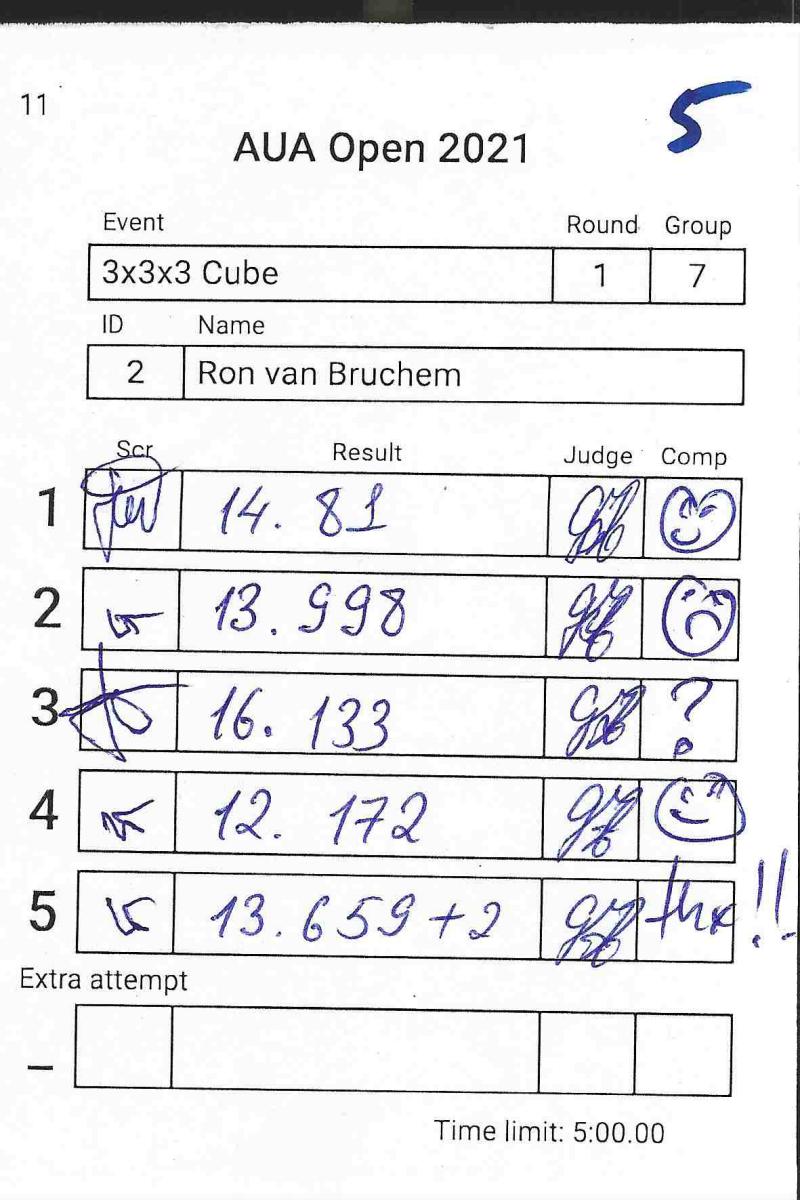 11
5
AUA Open 2021
Event Round Group
3x3x3 Cube 1 7
ID Name
2 Ron van Bruchem
Scr Result Judge Comp
1 14.81
2 13.998
3 16.133 ?
4 12.172
5 13.659+2 thx!!
Extra attempt
_
Time limit: 5:00.00